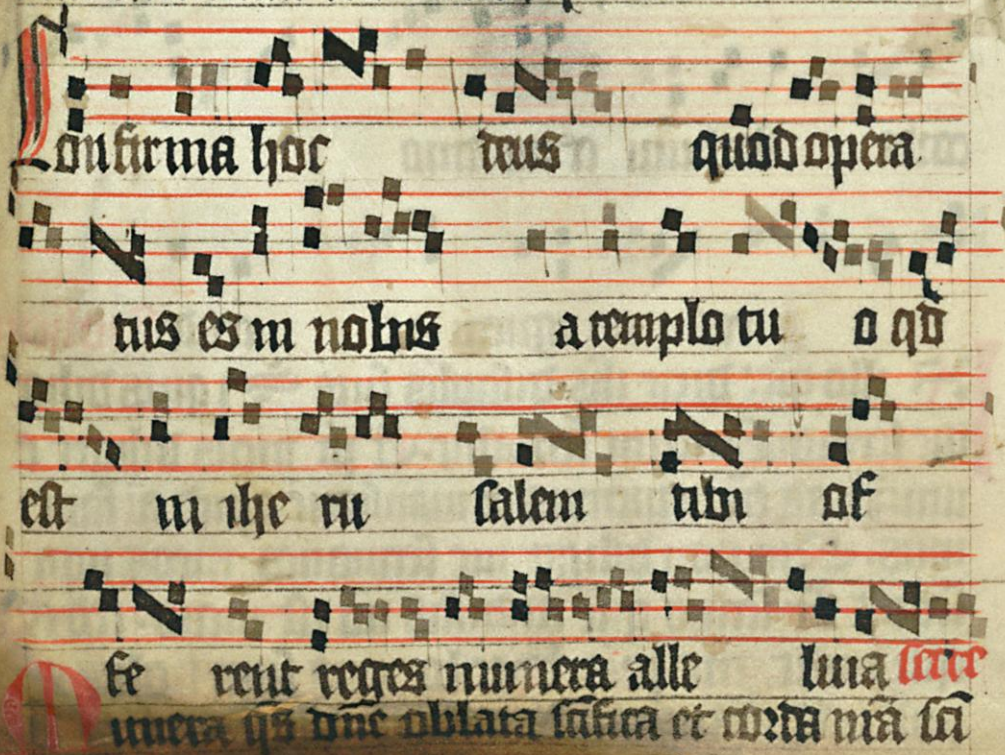 Confirma hoc deus quod opera
tus es in nobis a templo tuo qd
est in iherusalem tibi of
ferent reges munera alleluia secre
Munera qs dne oblata scifica et corda nra sci